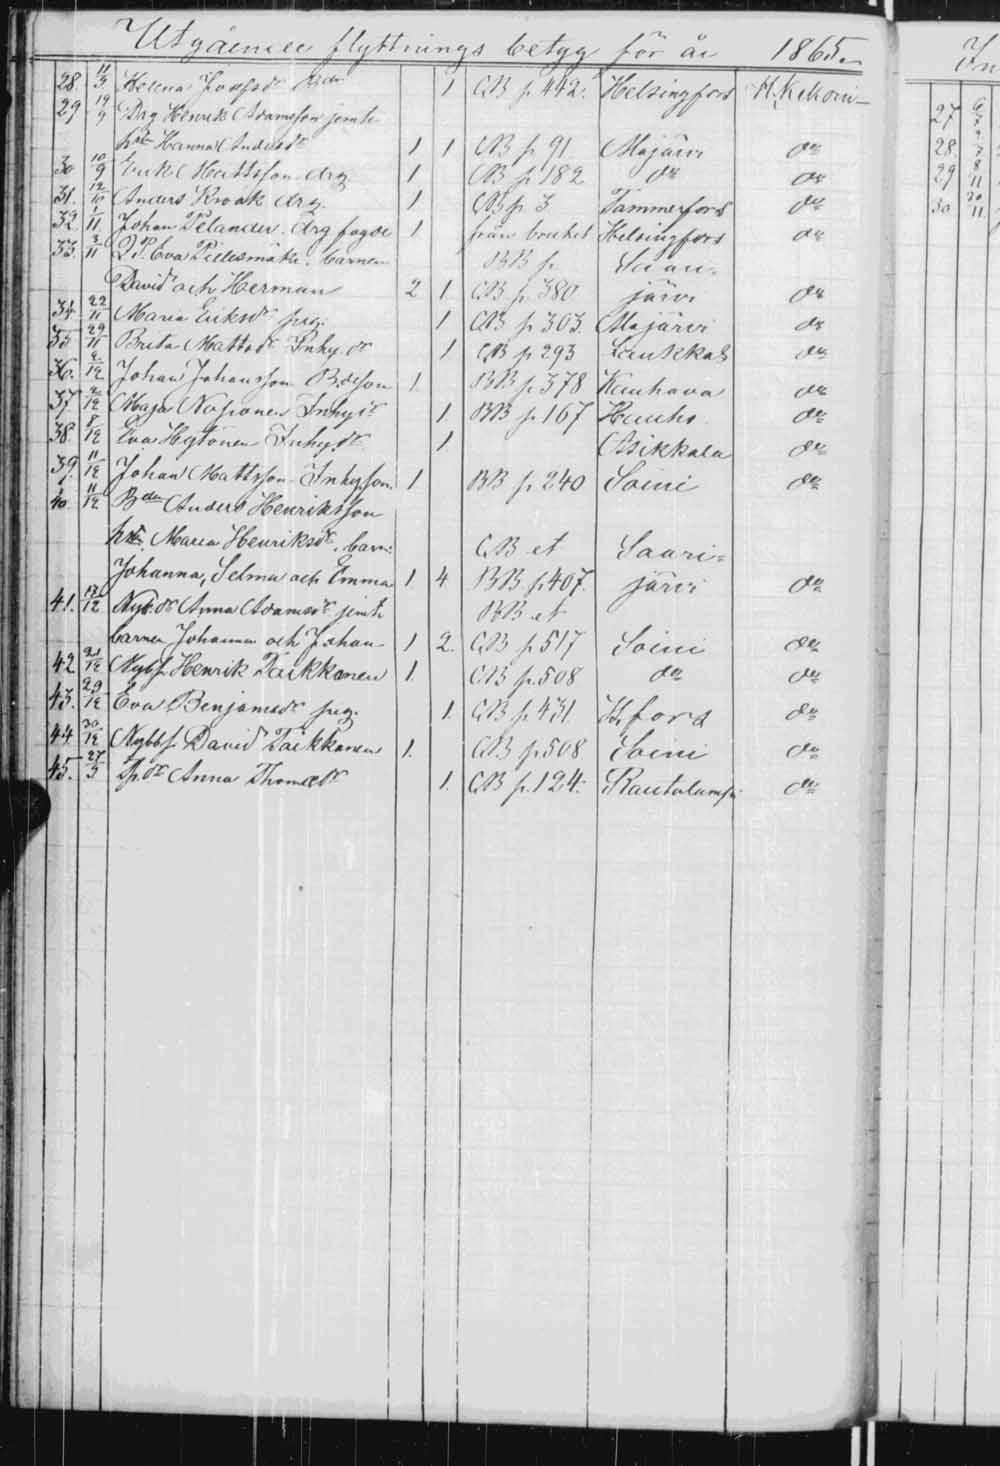 Utgående flyttnings betyg för år 1865.
28. 11/9 Helena Josefsdr 1 CB p. 442. Helsingfors H. Kekoni
29 19/9 Drg Henrik Adamsson jemte
hst Hanna Andersdr 1 1 CB p 91 Alajärvi do
30 10/9 Erik Mattsson drg 1 CB p 182 do do
31. 12/10 Anders Krook drg. 1 CB p. 3 Tammerfors do
32 1/11 Johan Pelander. drg fogde 1 från bruket Helsingfors do
33. 3/11 Q. P. Eva Pieksmäki. barnen BB p Saari=
David och Herman 2 1 CB p 380 järvi do
34 22/11 Maria Eriksdr pig. 1 CB p 303. Alajärvi do
35 29/11 Brita Mattsdr Inhy. dr 1 CB p 293 Laukkas do
36. 2/12 Johan Johansson B. deson 1. BB p 378 Kauhava do
37. 2/12 Maja Noponen Inhysdr 1 BB p. 167 Hauho. do
38. 8/12 Eva Hytönen Inhy. dr 1 Asikkala do
39. 11/12 Johan Mattsson Inhyson. 1 BB p. 240 Soini do
40. 11/12 Bden Anders Henriksson
hst. Maria Henriksdr. barn: CB et Saari=
Johanna, Selma och Emma 1 4 BB p. 407. järvi do
41. 18/12 Nyb. dr Anna Adamsdr jemte BB et
barnen Johanna och Johan 1 2. CB p. 517 Soini do
42 21/12 Nybf Henrik Taikkonen 1. CB p. 508 do do
43. 29/12 Eva Benjamsdr pig. 1. CB p. 431. H. fors do
44 30/12 Nybbf David Taikkanen 1. CB p. 508 Soini do
45. 27/3 Tp. dr Anna Thomædr 1. CB p. 124. Rautalampi do
In
27
28.
29 8/11
30 30/11